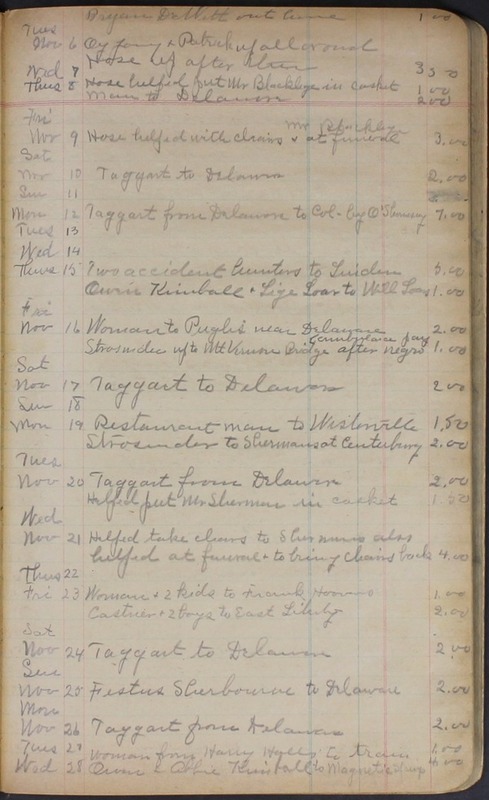 Bryan DeWitt out home 1 00
Tues
Nov 6 Cy & Patrick up all round
Hose up after 
Wed 7 3 50
Thurs 8 Hose helped put Mr Blacklege in casket 1 00
Man to Delawn 2 00
Fri Mr
Nov 9 Hose helped with chairs & at funeral 3.00
Sat
Nov 10 Taggart to Delawn 2.00
Sun 11
Mon 12 Taggart from Delawn to Col- 7.00
Tues 13
Wed 14
Thurs 15 Two accident hunters to Linden 5.00
Owen Kimball & Lige Loar to Will Loars 1.00
Fri
Nov 16 Woman to Pughs near Delaware 2.00
Strosnider up to Mt Vernon Bridge after negro 1.00
Sat
Nov 17 Taggart to Delawn 2 00
Sun 18
Mon 19 Restaurant man to Westerville 1.50
Strosnider to Shermans at Centerburg 2.00
Tues
Nov 20 Taggart from Delawn 2.00
Helped put Mr Sherman in casket 1.50
Wed
Nov 21 Helped take chairs to Shermans also
helped at funeral & to bring chairs back 4.00
Thurs 22
Fri 23 Woman & 2 kids to Frank Hoovers 1.00
Castner & 2 boys to East Liberty 2.00
Sat
Nov 24 Taggart to Delawn 2.00
Sun
Nov 25 Festus Sherbourne to Delaware 2.00
Mon
Nov 26 Taggart from Delawn 2.00
Tues 27 Woman from Harry to train 1.00
Wed 28 Owen & Kimball to Magnetic Springs